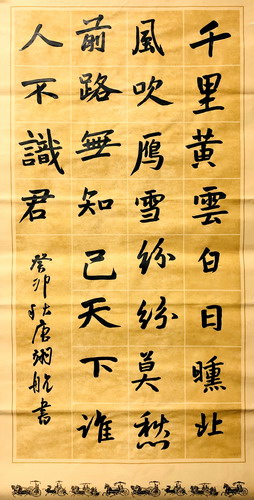 千里黄雲白日曛北
風吹鴈雪紛紛莫愁
前路無知己天下誰
人不識君
癸卯秋唐航書